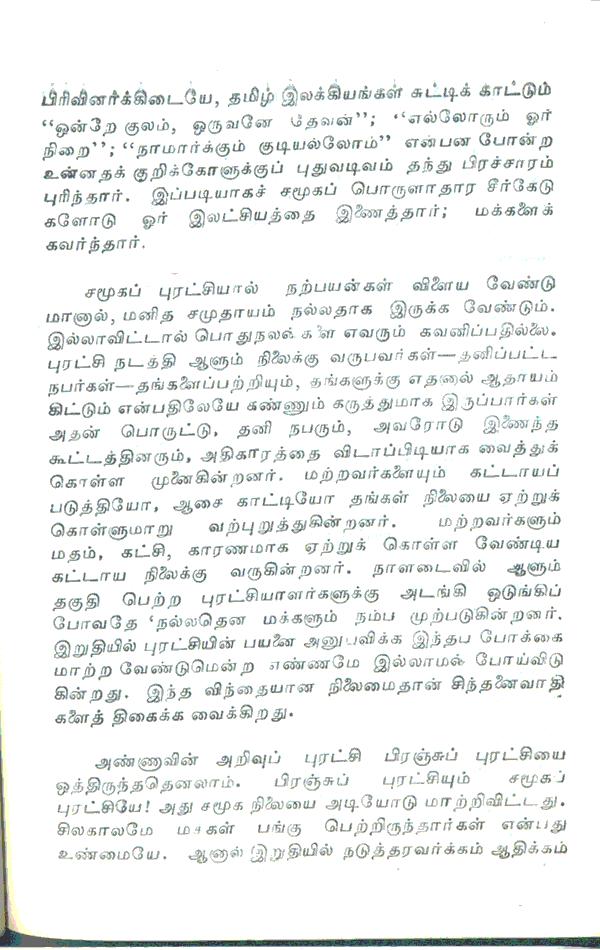 பிரிவினர்க்கிடையே, தமிழ் இலக்கியங்கள் சுட்டிக் காட்டும்
“ஒன்றே குலம், ஒருவனே தேவன்”; “எல்லோரும் ஓர்
நிறை”; “நாமார்க்கும் குடியல்லோம்” என்பன போன்ற
உன்னதக் குறிக்கோளுக்குப் புதுவடிவம் தந்து பிரச்சாரம்
புரிந்தார். இப்படியாகச் சமூகப் பொருளாதார சீர்கேடு
களோடு ஓர் இலட்சியத்தை இணைத்தார்; மக்களைக்
கவர்ந்தார்.
சமூகப் புரட்சியால் நற்பயன்கள் விளைய வேண்டு
மானால், மனித சமுதாயம் நல்லதாக இருக்க வேண்டும்.
இல்லாவிட்டால் பொதுநலன்களை எவரும் கவனிப்பதில்லை.
புரட்சி நடத்தி ஆளும் நிலைக்கு வருபவர்கள்—தனிப்பட்ட
நபர்கள்—தங்களைப்பற்றியும், தங்களுக்கு எதனால் ஆதாயம்
கிட்டும் என்பதிலேயே கண்ணும் கருத்துமாக இருப்பார்கள்
அதன் பொருட்டு, தனி நபரும், அவரோடு இணைந்த
கூட்டத்தினரும், அதிகாரத்தை விடாப்பிடியாக வைத்துக்
கொள்ள முனைகின்றனர். மற்றவர்களையும் கட்டாயப்
படுத்தியோ, ஆசை காட்டியோ தங்கள் நிலையை ஏற்றுக்
கொள்ளுமாறு வற்புறுத்துகின்றனர். மற்றவர்களும்
மதம், கட்சி, காரணமாக ஏற்றுக் கொள்ள வேண்டிய
கட்டாய நிலைக்கு வருகின்றனர். நாளடைவில் ஆளும்
தகுதி பெற்ற புரட்சியாளர்களுக்கு அடங்கி ஒடுங்கிப்
போவதே ‘நல்லதென மக்களும் நம்ப முற்படுகின்றனர்.
இறுதியில் புரட்சியின் பயனை அனுபவிக்க இந்தப போக்கை
மாற்ற வேண்டுமென்ற எண்ணமே இல்லாமல் போய்விடு
கின்றது. இந்த விந்தையான நிலைமைதான் சிந்தனைவாதி
களைத் திகைக்க வைக்கிறது.
அண்ணாவின் அறிவுப் புரட்சி பிரஞ்சுப் புரட்சியை
ஒத்திருந்ததெனலாம். பிரஞ்சுப் புரட்சியும் சமூகப்
புரட்சியே! அது சமூக நிலையை அடியோடு மாற்றிவிட்டது.
சிலகாலமே மக்கள் பங்கு பெற்றிருந்தார்கள் என்பது
உண்மையே. ஆனால் இறுதியில் நடுத்தரவர்க்கம் ஆதிக்கம்